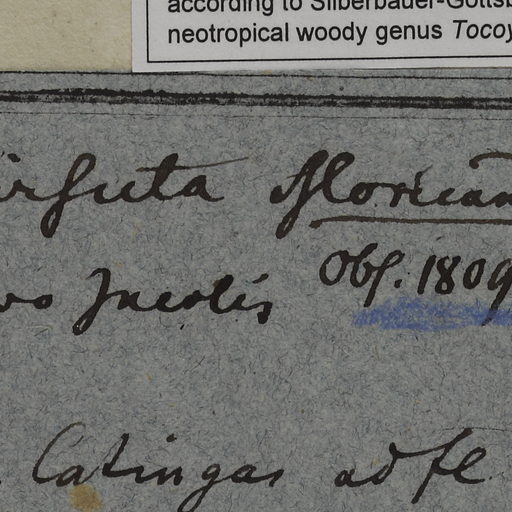 according to Silberbauer-Gottsb
neotropical woody genus Tocoy
irsuta
Obs. 1809
vo Incolis
Catingas ad fl